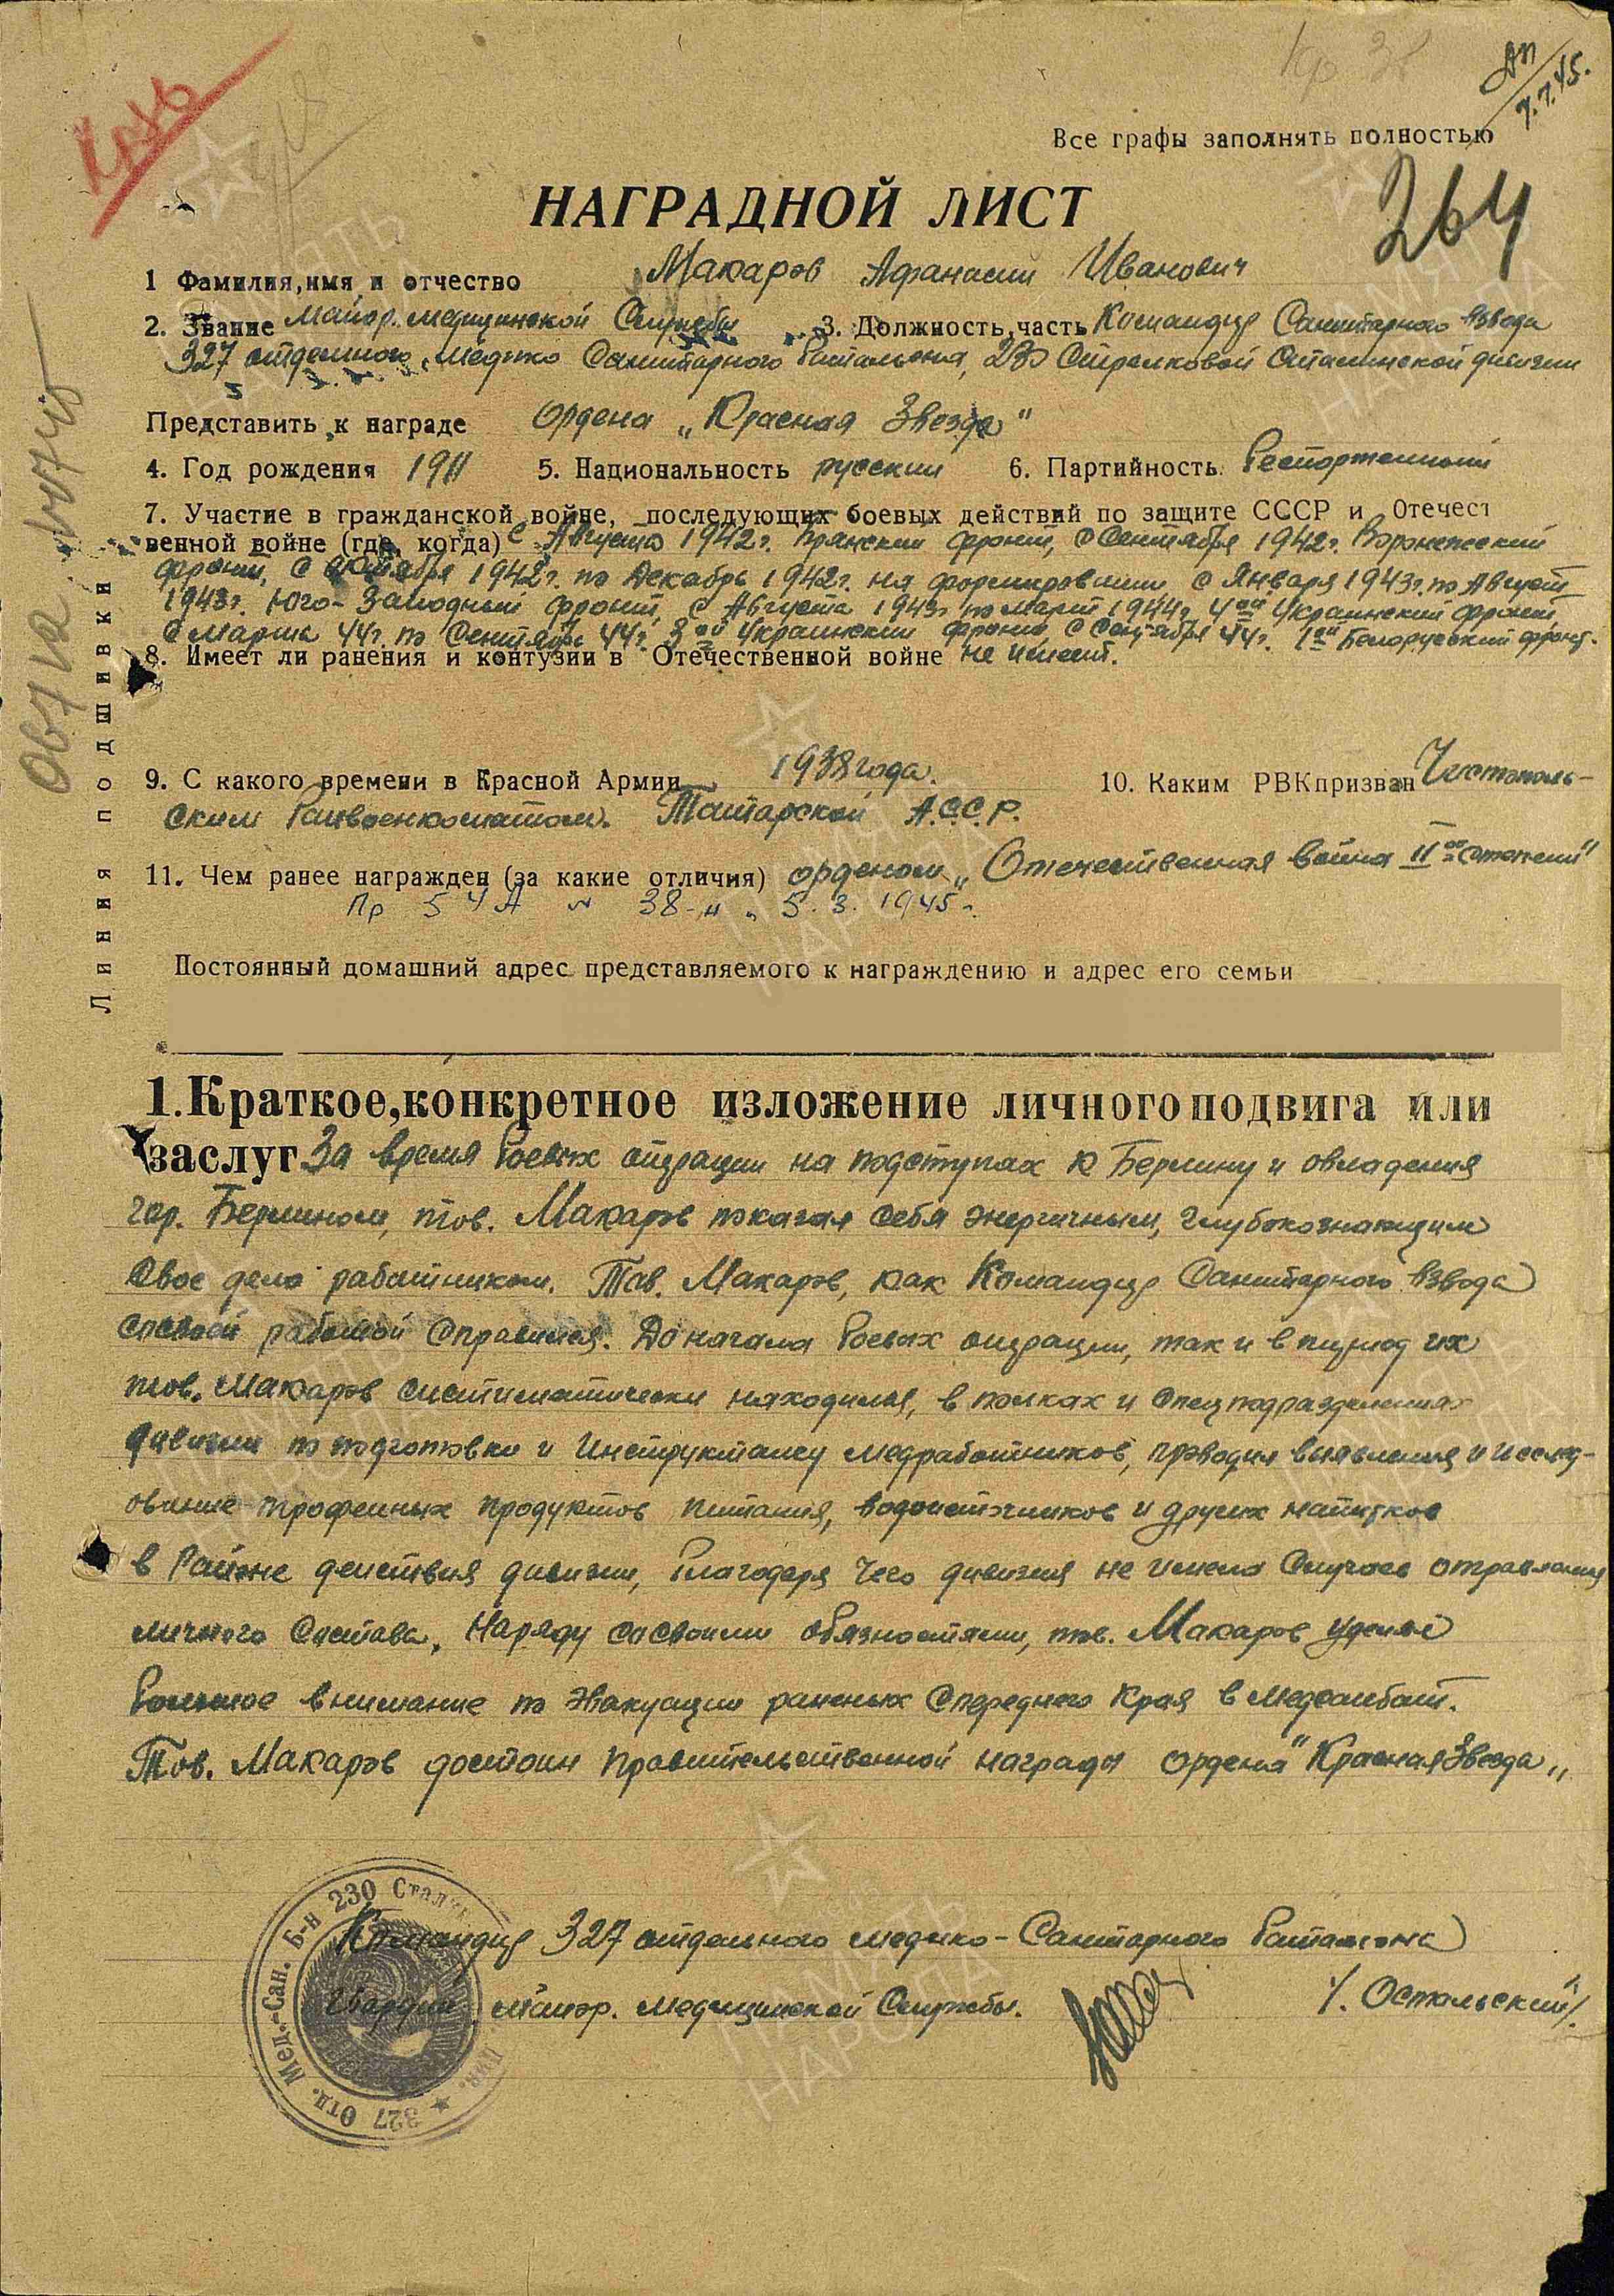 Кр 38
АП
7.7.45.
Все графы заполнять полностью
264
НАГРАДНОЙ ЛИСТ
1 Фамилия, имя и отчество Макаров Афанасий Иванович
2. Звание Майор. медицинской Службы 3. Должность, часть Командир Санитарного взвода
327 отдельного, медико Санитарного батальона, 230 Стрелковой Сталинской дивизии
Представить к награде Ордена „Красная Звезда"
4. Год рождения 1911 5. Национальность русский 6. Партийность. беспартейный
7. Участие в гражданской войне, последующих боевых действий по защите СССР и Отечест
венной войне (где, когда) с Августа 1942г. Брянский фронт, с Сентября 1942г. Воронежский
фронт, с октября 1942г. по Декабрь 1942г. на формировании с Января 1943г. по Август
1943г. Юго-Западный фронт, с Августа 1943г по март 1944г. 4ый Украинский фронт,
с Марта 44г. по Сентябрь 44г. 3ий Украинский фронт, с Сентября 44г. 1ый Белорусский фронт.
8. Имеет ли ранения и контузии в Отечественной войне не имеет.
9. С какого времени в Красной Армии 1938 года. 10. Каким РВК призван Чистополь-
ским Райвоенкоматом. Татарской А.С.С.Р.
11. Чем ранее награжден (за какие отличия) орденом „Отечественная война II ой степени"
Пр 5 УА № 38-н „ 5. 3. 1945г.
Постоянный домашний адрес представляемого к награждению и адрес его семьи
Линия подшивки
1. Краткое, конкретное изложение личного подвига или
заслуг За время боевых операции на подступах к Берлину и овладения
гор. Берлином, тов. Макаров показал себя энергичным, глубокознающим
свое дело работником. Тов. Макаров, как Командир Санитарного взвода
сосвоей работой справился. До начала боевых операции, так и в период их
тов. Макаров систиматически находился, в полках и спецподразделениях
дивизии по подготовки и инструктажу медработников, проводил выявления и исслед-
ование трофейных продуктов питания, водоисточников и других напитков
в Районе действия дивизии, благодаря чего дивизия не имела Случаев отравления
личного Состава. Наряду сосвоими обязностями, тов. Макаров уделял
большое внимание по эвакуации раненых спереднего Края в Медсанбат.
Тов. Макаров достоин правительственной награды ордена "Красная Звезда„
Командир 327 отдельного медико-Санитарного батальона
Гвардии майор. Медицинской Службы. /. Остальский/.
327 Отд. Мед.-Сан. Б-н 230 Сталин. див.
ПАМЯТЬ
НАРОДА